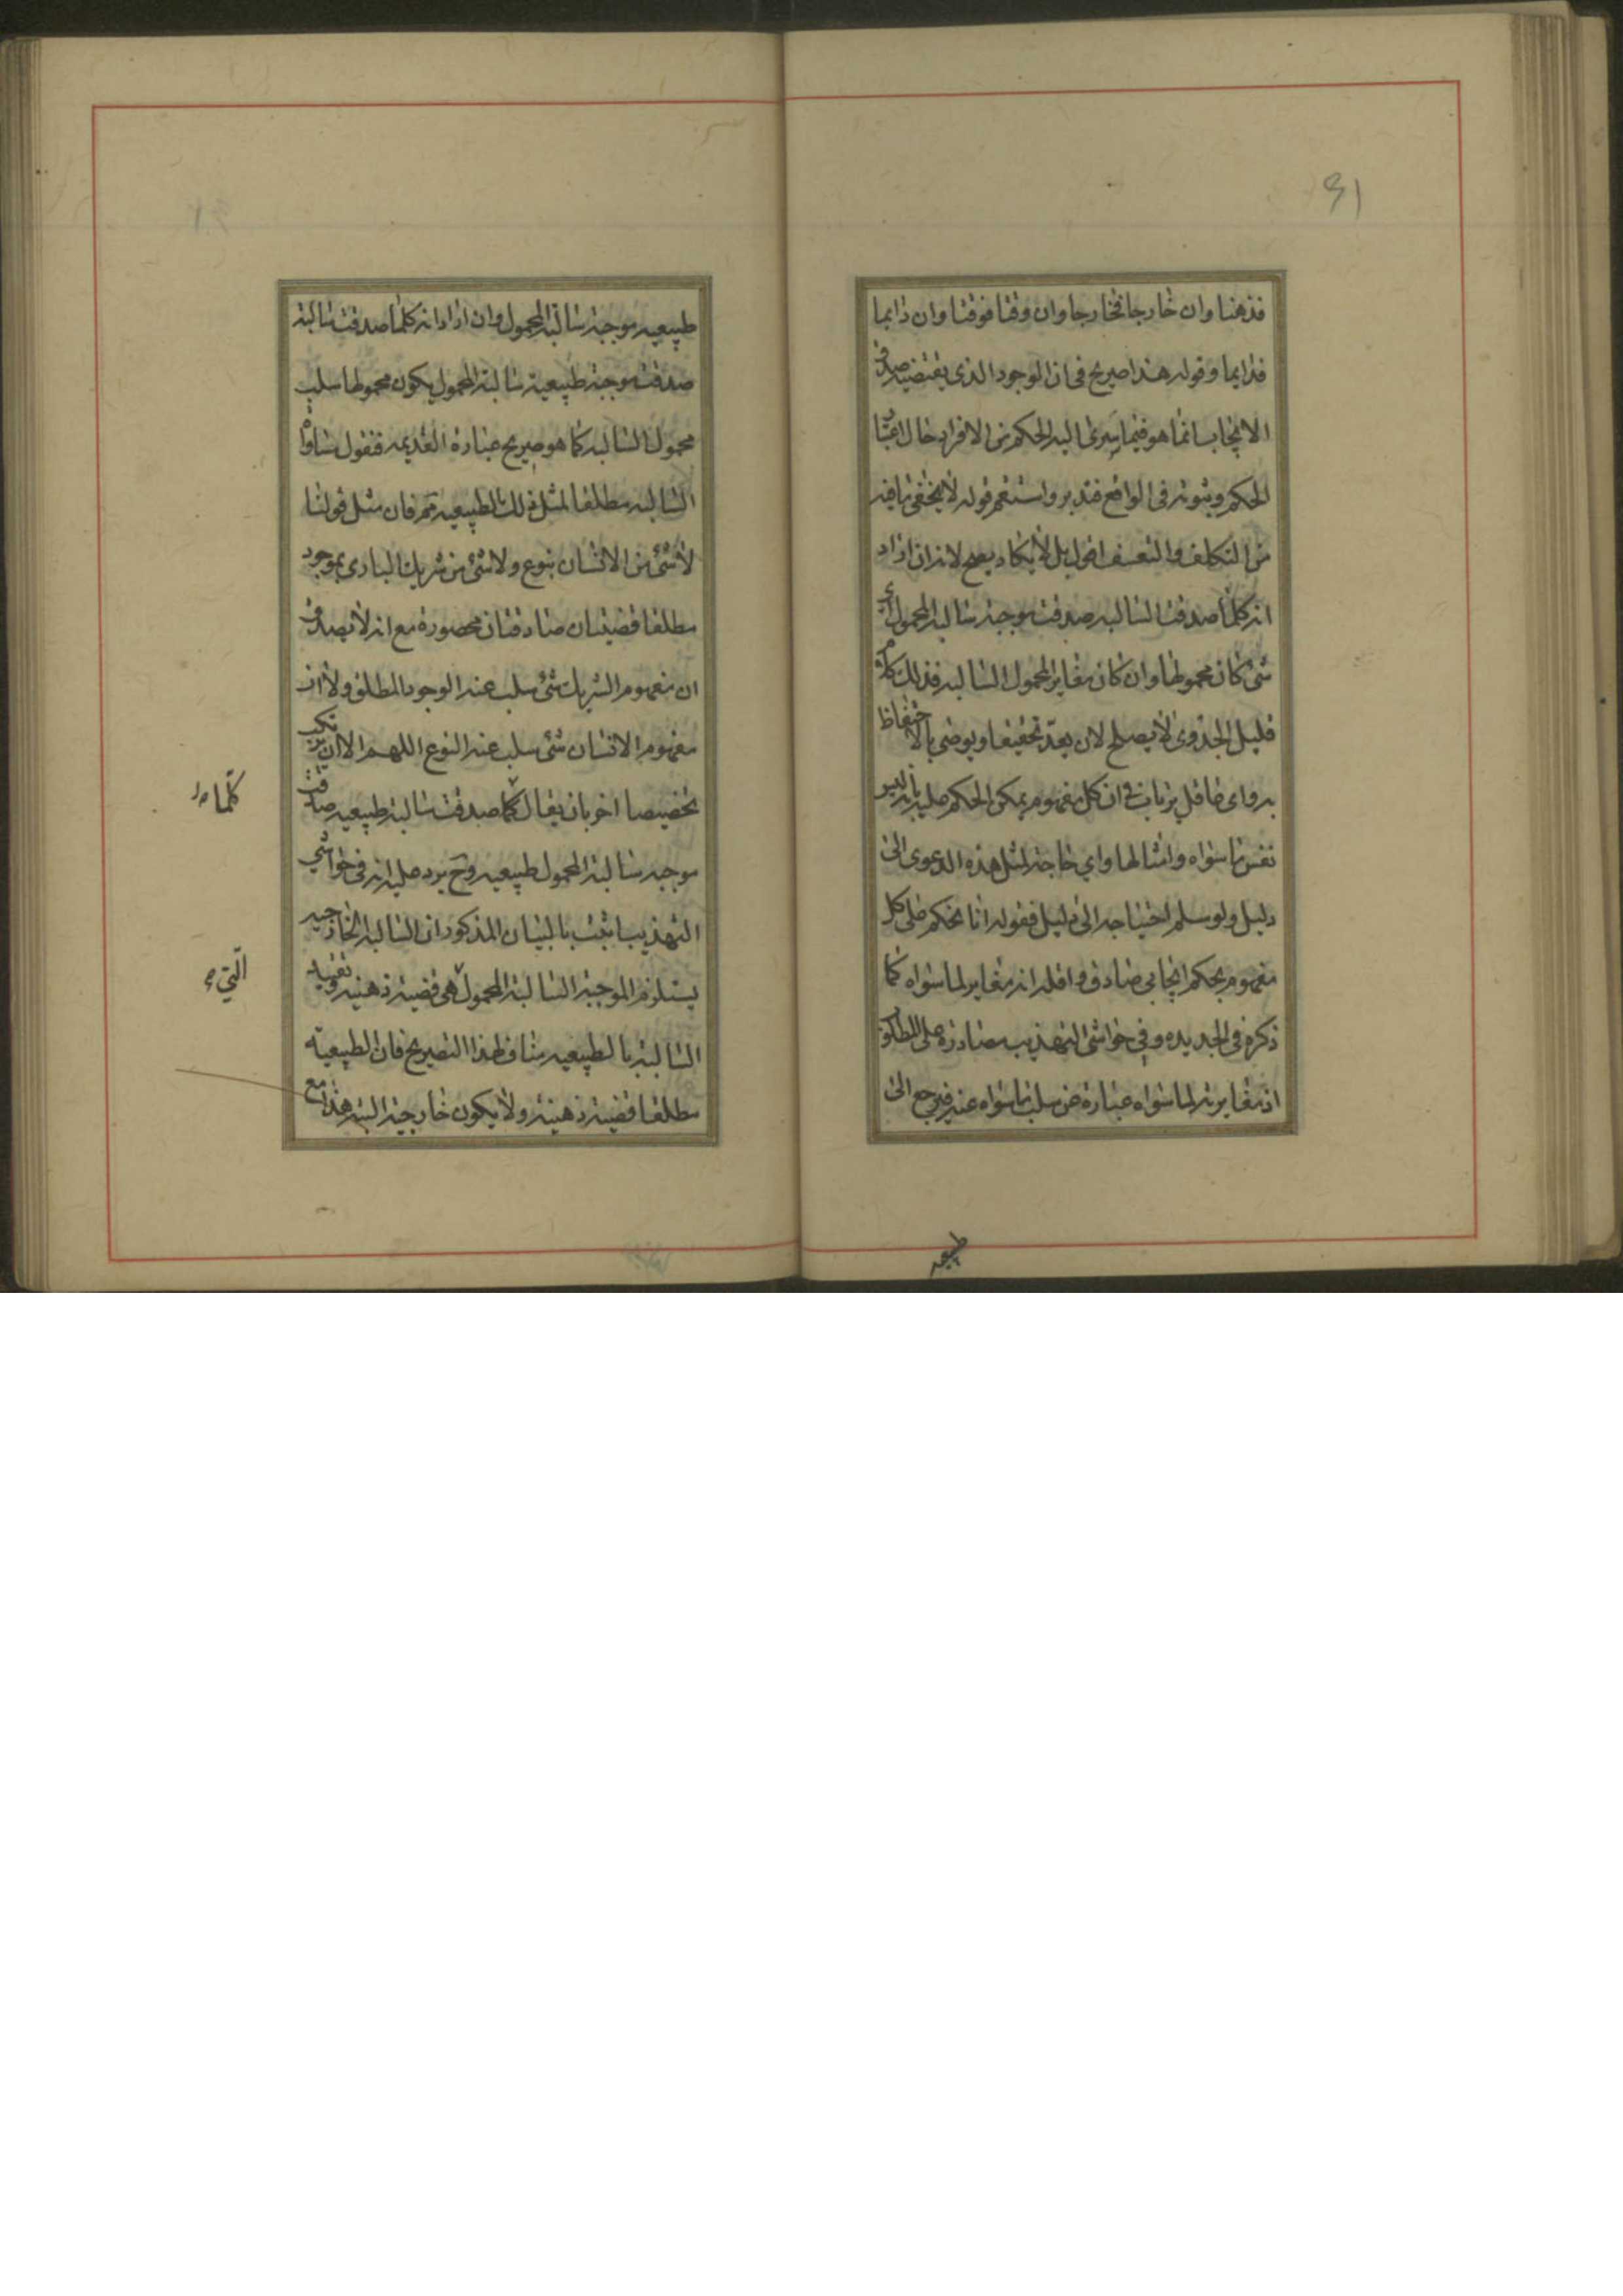 ٩١
فذهنا وان خارجا فخارجا وان وقتا فوقتا وان دايما
فدايما وقوله هذا صريح في ان الوجود الذي يقتضيه صدق
الايجاب انما هو فيما يسري اليه الحكم من الافراد حال اعتبار
الحكم وثبوته في الواقع فتدبر واستقم قوله لا يخفى ما فيه
من التكلف والتعسف اقول بل لا يكاد يصح لانه ان اراد
انه كلما صدقت السالبه صدقت موجبة سالبة المحمول اي
شئ كان محمولها وان كان مغاير المحمول السالبه فذلك كلام
قليل الجدوى لا يصلح لان يعد تحقيقا ويوصى بالاحتفاظ
به واي عاقل يرتاب في ان كل مفهوم يمكن الحكم عليه بانه ليس
نفس ما سواه وامثالها واي حاجة لمثل هذه الدعوى الى
دليل ولو سلم احتياجه الى دليل فقوله انا نحكم على كل
مفهوم بحكم ايجابي صادق واقله انه مغاير لما سواه كما
ذكره في الجديده وفي حواشي التهذيب مصادرة على المطلوب
اذ مغايرته لما سواه عبارة عن سلب ما سواه عنه فيرجع الى
طبيعيه
طبيعيه موجبة سالبة المحمول وان اراد انه كلما صدقت سالبة
صدقت موجبة طبيعية سالبة المحمول يكون محمولها سلب
محمول السالبه كما هو صريح عبارة القديمه فنقول مساواة
السالبه مطلقا لمثل ذلك الطبيعيه مم فان مثل قولنا
لا شئ من الانسان بنوع ولا شئ من شريك الباري بموجود
مطلقا قضيتان صادقتان محصورة مع انه لا يصدق
ان مفهوم الشريك شئ سلب عنه الوجود المطلق ولا ان
مفهوم الانسان شئ سلب عنه النوع اللهم الا ان يرتكب
تخصيصا اخر بان يقال كما صدقت سالبة طبيعيه صدقت
موجبه سالبة المحمول طبيعيه وح يرد عليه انه في حواشي
التهذيب اثبت بالبيان المذكور ان السالبه الخارجيه
يستلزم الموجبة السالبة المحمول هي قضية ذهنيه وتقييد
السالبة بالطبيعيه مناف لهذا التصريح فان الطبيعية
مطلقا قضية ذهنية ولا يكون خارجية البته هذا مع
كلما
التي